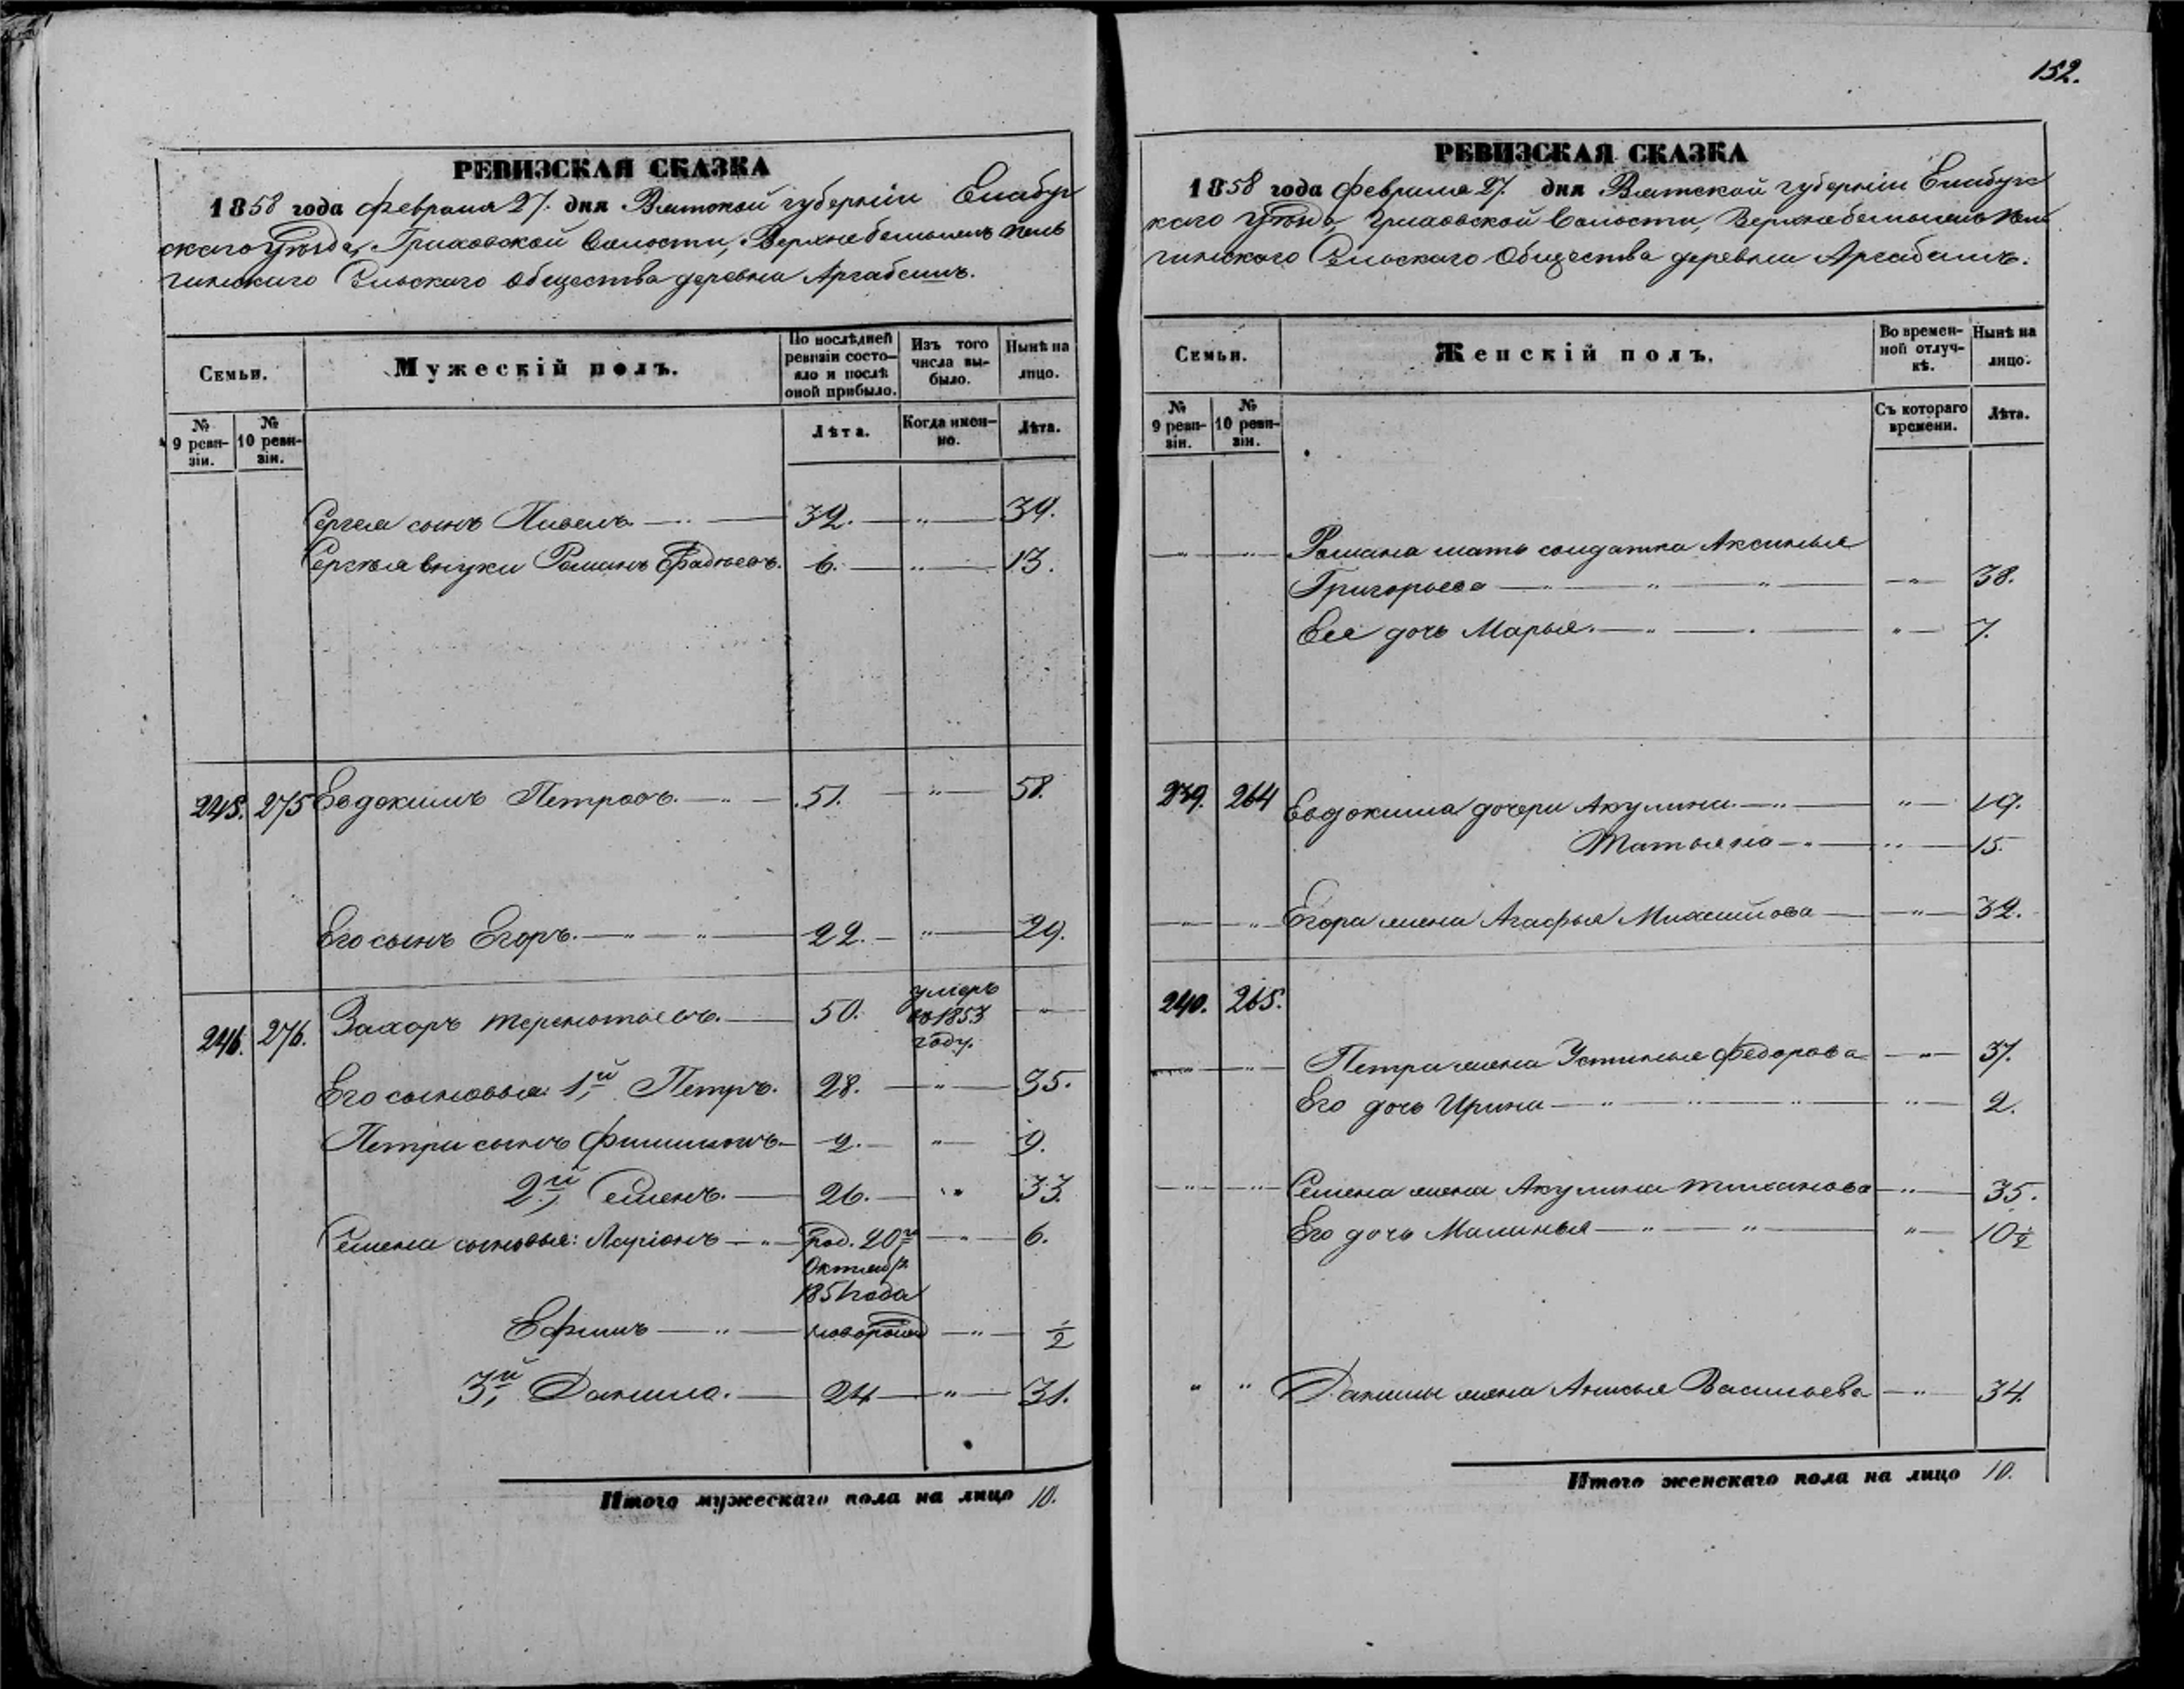 РЕВИЗСКАЯ СКАЗКА
1858 года февраля 27. дня Вятской губернiи Елабуж
скаго Уѣзда, Граховской Волости,
гинскаго Сельскаго Общества деревни
Семьи.
Мужескій полъ.
По послѣдней
ревизіи состо-
яло и послѣ
оной прибыло.
Изъ того
числа вы-
было.
Нынѣ на
лицо.
№
9 реви-
зіи.
№
10 реви-
зіи.
Лѣта.
Когда имен-
но.
Лѣта.
Сергея сынъ Павелъ. — „ — 32. — „ — 39.
Сергѣя внуки Романъ Фадѣевъ. 6. — „ — 13.
245. 275 Евдокимъ Петровъ. — „ — 51. — „ — 58.
Его сынъ Егоръ. — „ — „ — 22. — „ — 29.
246. 276. Захаръ Терентьевъ. — 50. умеръ
въ 1853
году. — „ —
Его сыновья: 1й, Петръ. 28. — „ — 35.
Петра сынъ Филимонъ — 2. — „ — 9.
2й, Семенъ. — 26. — „ 33.
Семена сыновья: Ларіонъ — „ — род. 20го
Октября
1851 года — „ — 6.
Ефимъ — „ — новорожд — „ — 1/2
3й, Данило. — 24 — „ — 31.
Итого мужескаго пола на лицо 10.
152.
РЕВИЗСКАЯ СКАЗКА
1858 года февраля 27. дня Вятской губернiи Елабужс
каго Уѣзда, Граховской Волости,
гинскаго Сельскаго Общества деревни
Семьи.
Женскій полъ.
Во времен-
ной отлуч-
кѣ.
Нынѣ на
лицо.
№
9 реви-
зіи.
№
10 реви-
зіи.
Съ котораго
времени.
Лѣта.
— „ — „ — Романа мать солдатка Аксинья
Григорьева — „ — „ — „ — „ — 38.
Ее дочь Марья. — „ — „ — „ — 7.
239. 264 Евдокима дочери Акулина — „ — „ — 19.
Татьяна — „ — „ — 15.
— „ — „ — Егора жена Агафья Михайлова — „ — 32.
240. 265.
— „ — „ — Петра жена Устинья Федорова — „ — 37.
Его дочь Ирина — „ — „ — „ — „ — 2.
— „ — „ — Семена жена Акулина Тиханова — „ — 35.
Его дочь Маланья — „ — „ — „ — 10 1/2
„ „ Данилы жена Анисья Васильева — „ — 34.
Итого женскаго пола на лицо 10.